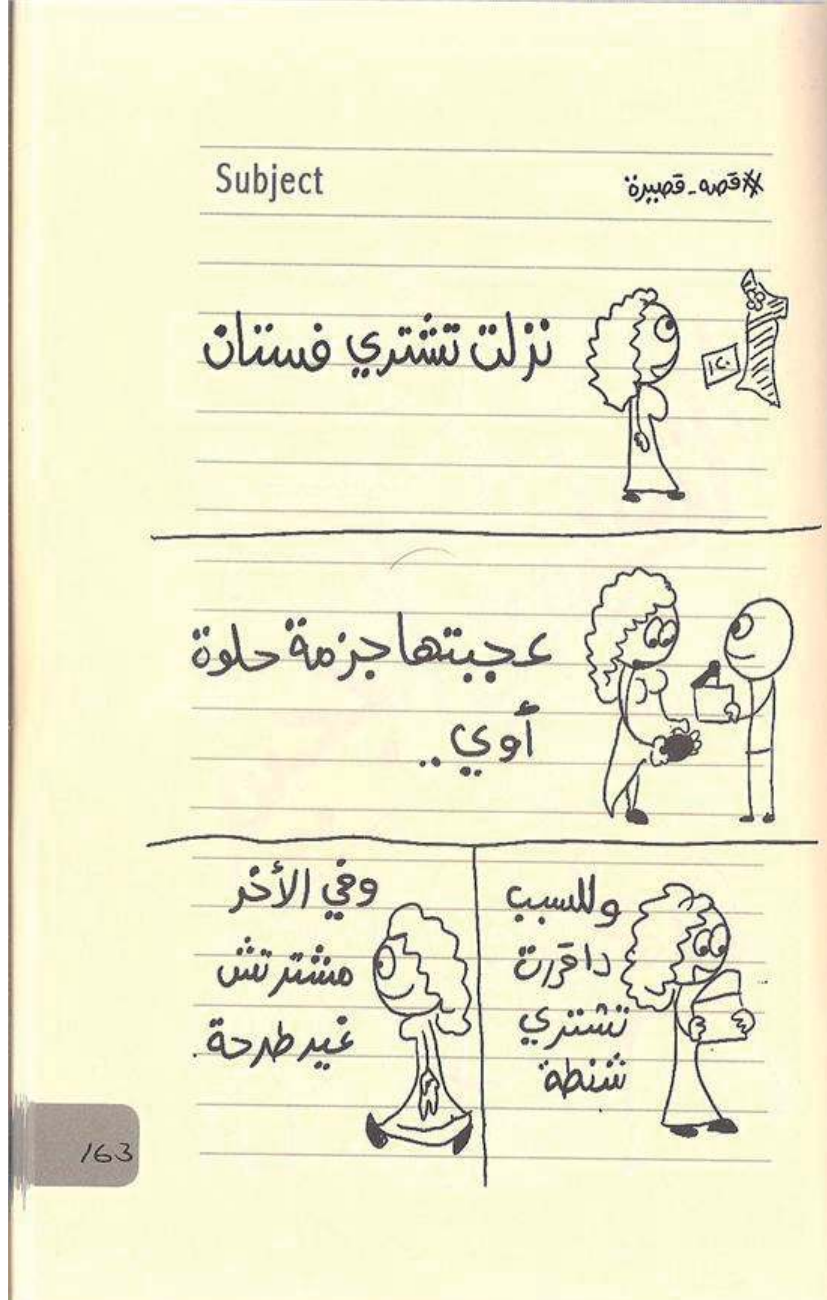 Subject
#قصه_قصيرة
١٢٠
نزلت تشتري فستان
عجبتها جزمة حلوة
أوي..
وللسبب
دا قررت
تشتري
شنطة
وفي الأخر
مشترتش
غير طرحة.
163